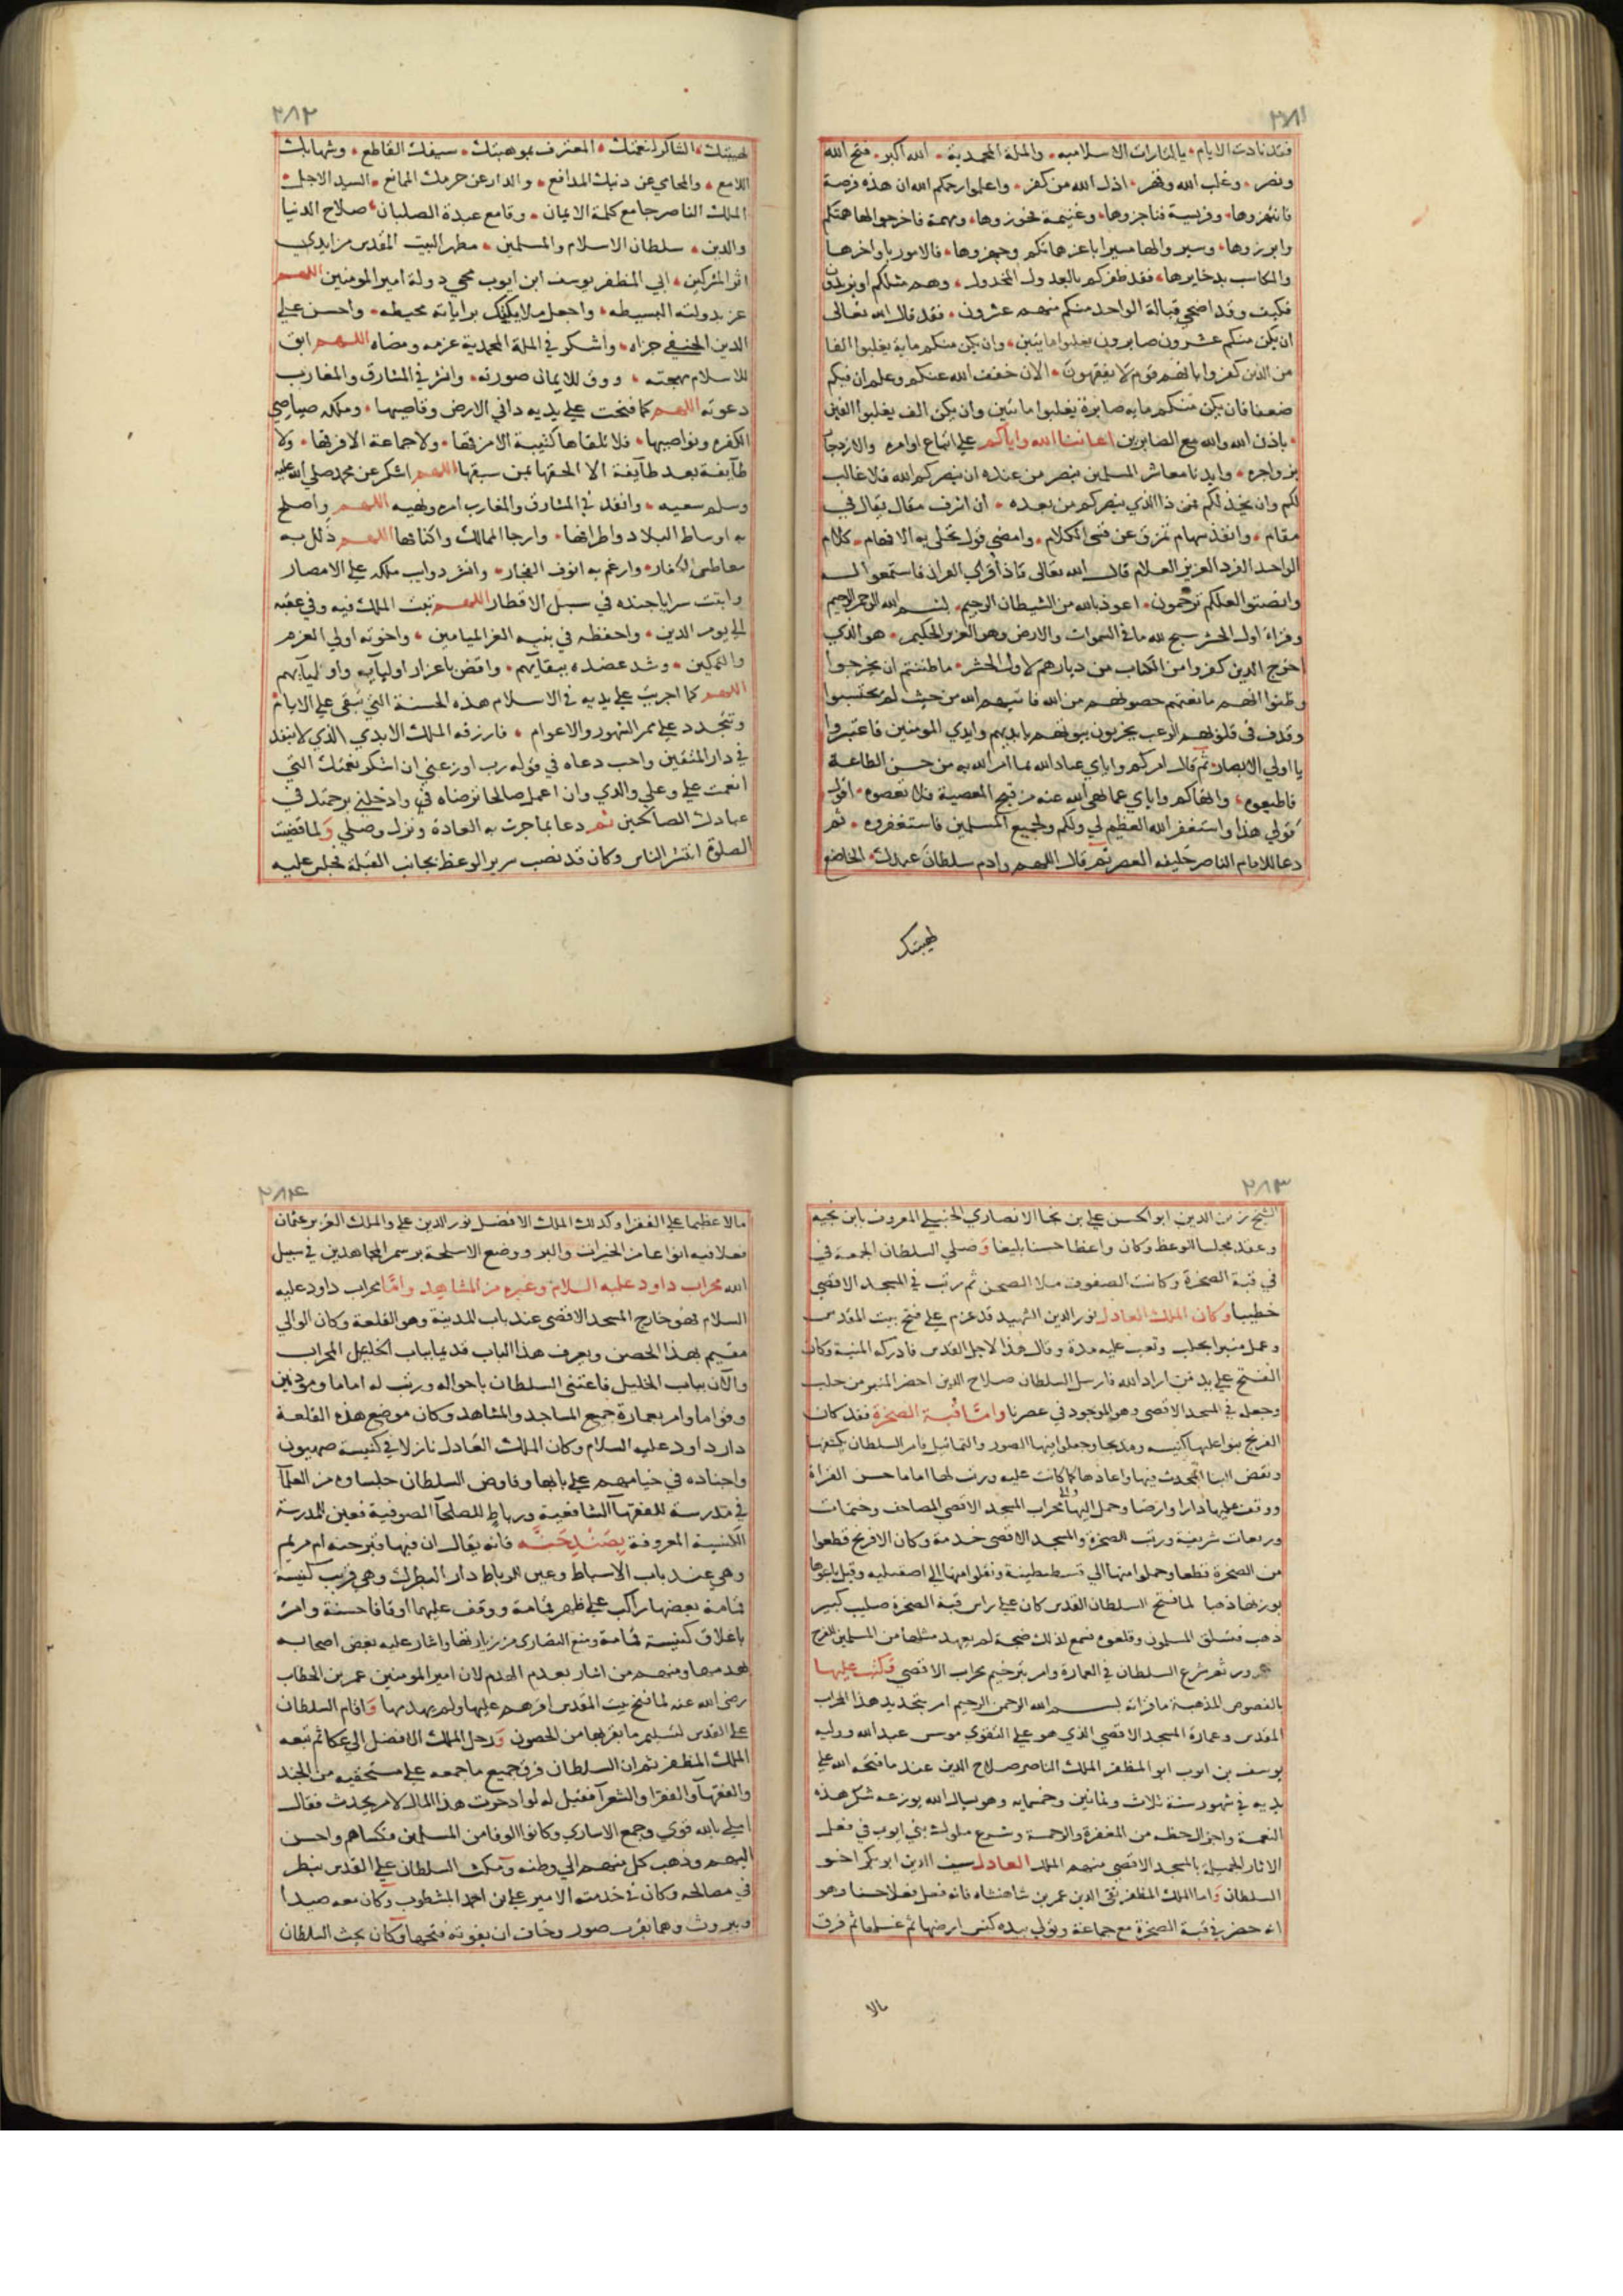 ٢٨١
فقد نادت الايام يالثارات الاسلاميه والملة المحمدية الله اكبر فتح الله
ونصر وغلب الله وقهر اذل الله من كفر واعلموا رحمكم الله ان هذه فرصة
فانتهزوها وفريسة فناجزوها وغنيمة فحوزوها ومهمة فاخرجوا لها هممكم
وابرزوها وسيروا لها سرايا عزماتكم وجهزوها فالامور باواخرها
والمكاسب بدخايرها فقد ظفركم بالعدو المخذول وهم مثلكم او يزيدون
فكيف وقد اضحى قبالة الواحد منكم منهم عشرون فقد قال الله تعالى
ان يكن منكم عشرون صابرون يغلبوا مايتين وان يكن منكم ماية يغلبوا الفا
من الذين كفروا بانهم قوم لا يفقهون الان خفف الله عنكم وعلم ان فيكم
ضعفا فان يكن منكم مايه صابرة يغلبوا مائتين وان يكن الف يغلبوا الفين
باذن الله والله مع الصابرين اعاننا الله واياكم على اتباع اوامره والازدجار
بزواجره وايدنا معاشر المسلمين بنصر من عنده ان ينصركم الله فلا غالب
لكم وان يخذلكم فمن ذا الذي ينصركم من بعده ان اشرف مقال يقال في
مقام وانفذ سهام تمرق عن قسي الكلام وامضى قول تحلى به الافهام كلام
الواحد الفرد العزيز العلام قال الله تعالى فاذا قرأي القران فاستمعوا له
وانصتوا لعلكم ترحمون اعوذ بالله من الشيطان الرجيم بسم الله الرحمن الرحيم
وقراء اول الحشر سبح لله ما في السموات والارض وهو العزيز الحكيم هو الذي
اخرج الذين كفروا من اهل الكتاب من ديارهم لاول الحشر ما ظننتم ان يخرجوا
وظنوا انهم مانعتهم حصونهم من الله فاتيهم الله من حيث لم يحتسبوا
وقذف في قلوبهم الرعب يخربون بيوتهم بايديهم وايدي المومنين فاعتبروا
يا اولي الابصار ثم قال امركم واياي عباد الله بما امر الله به من حسن الطاعة
فاطيعوه وانهاكم واياي عما نهى الله عنه من قبح المعصية فلا تعصوه اقول
قولي هذا واستغفر الله العظيم لي ولكم ولجميع المسلمين فاستغفروه ثم
دعا للامام الناصر خليفه العصر ثم قال اللهم وادم سلطان عبدك الخاضع
لهيبتك
٢٨٢
لهيبتك الشاكر لنعمتك المعترف بموهبتك سيفك القاطع وشهابك
اللامع والمحامي عن دينك المدافع والدار عن حرمك الممانع السيد الاجل
الملك الناصر جامع كلمة الايمان وقامع عبدة الصلبان صلاح الدنيا
والدين سلطان الاسلام والمسلمين مطهر البيت المقدس من ايدي
المشركين ابي المظفر يوسف ابن ايوب محي دولة امير المومنين اللهم
عم بدولته البسيطه واجعل ملايكتك براياته محيطه واحسن على
الدين الحنيفي جزاه واشكر في الملة المحمدية عزمه ومضاه اللهم ابق
للاسلام مهجته ووق للايمان صورته وانشر في المشارق والمغارب
دعوته اللهم كما فتحت على يديه داني الارض وقاصيها وملكه صياصي
الكفره ونواصيها فلا تلقاها كتيبة الا مزقها ولا جماعة الا فرقها ولا
طايفة بعد طايفة الا الحقها بمن سبقها اللهم اشكر عن محمد صلى الله عليه
وسلم سعيه وانفذ في المشارق والمغارب امره ونهيه اللهم واصلح
به اوساط البلاد واطرافها وارجا الممالك واكنافها اللهم ذلل به
معاطس الكفار وارغم به انوف الفجار وانشر دوايب ملكه على الامصار
وابثث سرايا جنده في سبل الاقطار اللهم ثبت الملك فيه وفي عقبه
الى يوم الدين واحفظه في بنيه الغر الميامين واخوته اولي العزم
والتمكين وشد عضده ببقايهم واقض باعزاز اوليايه واوليايهم
اللهم كما اجريت على يديه في الاسلام هذه الحسنة التي تبقى على الايام
وتتجدد على ممر الشهور والاعوام فارزقه الملك الابدي الذي لا ينفد
في دار المتقين واجب دعاه في قوله رب اوزعني ان اشكر نعمتك التي
انعمت علي وعلى والدي وان اعمل صالحا ترضاه في وادخلني برحمتك في
عبادك الصالحين ثم دعا بما جرت به العادة ونزل وصلى ولما قضيت
الصلوة انتشر الناس وكان قد نصب سرير الوعظ بجانب القبلة فجلس عليه
٢٨٣
الشيخ زين الدين ابو الحسن علي بن نجا الانصاري الحنبلي المعروف بابن نجيه
وعقد مجلسا للوعظ وكان واعظا حسنا بليغا وصلى السلطان الجمعة في
في قبة الصخرة وكانت الصفوف ملا الصحن ثم رتب في المسجد الاقصى
خطيبا وكان الملك العادل نور الدين الشهيد قد عزم على فتح بيت المقدس
وعمل منبرا بحلب وتعب عليه مدة وقال هذا لاجل القدس فادركه المنية وكان
الفتح على يد من اراد الله فارسل السلطان صلاح الدين احضر المنبر من حلب
وجعله في المسجد الاقصى وهو الموجود في عصرنا واما قبة الصخرة فقد كان
الفرنج بنوا عليها كنيسه ومذبحا وجعلوا فيها الصور والتماثيل فامر السلطان بكشفها
ونقض البنا المحدث فيها واعادها كما كانت عليه ورتب لها اماما حسن القراة
ووقف عليها دارا وارضا وحمل اليها والى محراب المسجد الاقصى المصاحف وختمات
وربعات شريفة ورتب للصخرة والمسجد الاقصى خدمة وكان الافرنج قطعوا
من الصخرة قطعا وحملوا منها الى قسطنطينة ونقلوا منها الى اصقيليه وقيل باعوها
بوزنها ذهبا لما فتح السلطان القدس كان على راس قبة الصخرة صليب كبير
ذهب فتسلق المسلمون وقلعوه فسمع لذلك ضجة لم يعهد مثلها من المسلمين للفرح
ثم شرع السلطان في العمارة وامر بترخيم محراب الاقصى فكتب عليها
بالفصوص المذهبة ما قرائه بسم الله الرحمن الرحيم امر بتجديد هذا المحراب
المقدس وعمارة المسجد الاقصى الذي هو على التقوى موسس عبد الله ووليه
يوسف بن ايوب ابو المظفر الملك الناصر صلاح الدين عند ما فتحه الله على
يديه في شهور سنة ثلاث وثمانين وخمسمايه وهو يسال الله يوزعه شكر هذه
النعمة واجزال حظه من المغفرة والرحمة وشرع ملوك بني ايوب في فعل
الاثار الجميلة بالمسجد الاقصى منهم الملك العادل سيف الدين ابو بكر اخو
السلطان واما الملك المظفر تقي الدين عمر بن شاهنشاه فانه فعل فعلا حسنا وهو
انه حضر في قبة الصخرة مع جماعة وتولى بيده كنس ارضها ثم غسلها ثم فرق
مالا
٢٨٤
مالا عظيما على الفقرا وكذلك الملك الافضل نور الدين علي والملك العزيز عثمان
فعلا فيه انواعا من الخيرات والبر ووضع الاسلحة برسم المجاهدين في سبيل
الله محراب داود عليه السلام وغيره من المشاهد واما محراب داود عليه
السلام فهو خارج المسجد الاقصى عند باب المدينة وهو القلعة وكان الوالي
مقيم بهذا الحصن ويعرف هذا الباب قديما بباب الخليل المحراب
والآن بباب الخليل فاعتنى السلطان باحواله ورتب له اماما وموذنين
وقواما وامر بعمارة جميع المساجد والمشاهد وكان موضع هذه القلعة
دار داود عليه السلام وكان الملك العادل نازلا في كنيسة صهيون
واجناده في خيامهم على بابها وفاوض السلطان جلساوه من العلمآ
في مدرسة للفقهآ الشافعية ورباط للصلحآ الصوفية فعين للمدرسة
الكنيسة المعروفة بصندحنه فانه يقال ان فيها قبر حنه ام مريم
وهي عند باب الاسباط وعين الرباط دار البطرك وهي قريب كنيسة
قمامة بعضها راكب على ظهر قمامة ووقف عليهما اوقافا حسنة وامر
باغلاق كنيسة قمامة ومنع النصارى من زيارتها واشار عليه بعض اصحابه
بهدمها ومنهم من اشار بعدم الهدم لان امير المومنين عمر بن الخطاب
رضي الله عنه لما فتح بيت المقدس اقرهم عليها ولم يهدمها واقام السلطان
على القدس لتسليم ما بقربها من الحصون ورحل الملك الافضل الى عكا ثم تبعه
الملك المظفر ثم ان السلطان فرق جميع ما جمعه على مستحقيه من الجند
والفقهآ والفقرا والشعرآ فقيل له لو ادخرت هذا المال لامر يحدث فقال
املي بالله قوي وجمع الاسارى وكانوا الوفا من المسلمين فكساهم واحسن
اليهم وذهب كل منهم الى وطنه ومكث السلطان على القدس ينظر
في مصالحه وكان في خدمته الامير علي بن احمد المشطوب وكان معه صيدا
وبيروت وهما بقرب صور وخاف ان يفوته فتحها وكان يحث السلطان